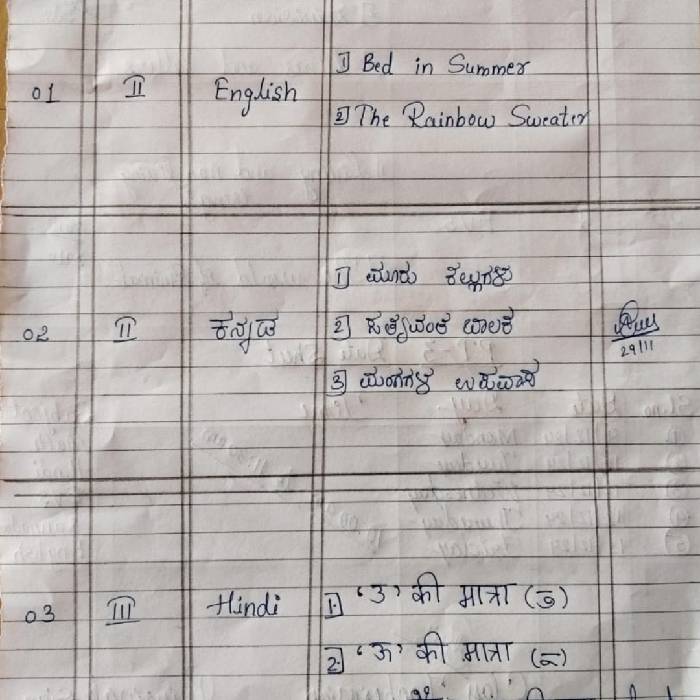 1) Bed in Summer
01 II English
2) The Rainbow Sweater
1) ಮೂರು ಕಲ್ಲುಗಳು
02 II ಕನ್ನಡ 2) ಸತ್ಯವಂತ ಬಾಲಕ
29/11
3) ಮಂಗಗಳ ಉಪವಾಸ
1) 'उ' की मात्रा (ु)
03 III Hindi
2) 'ऊ' की मात्रा (ू)